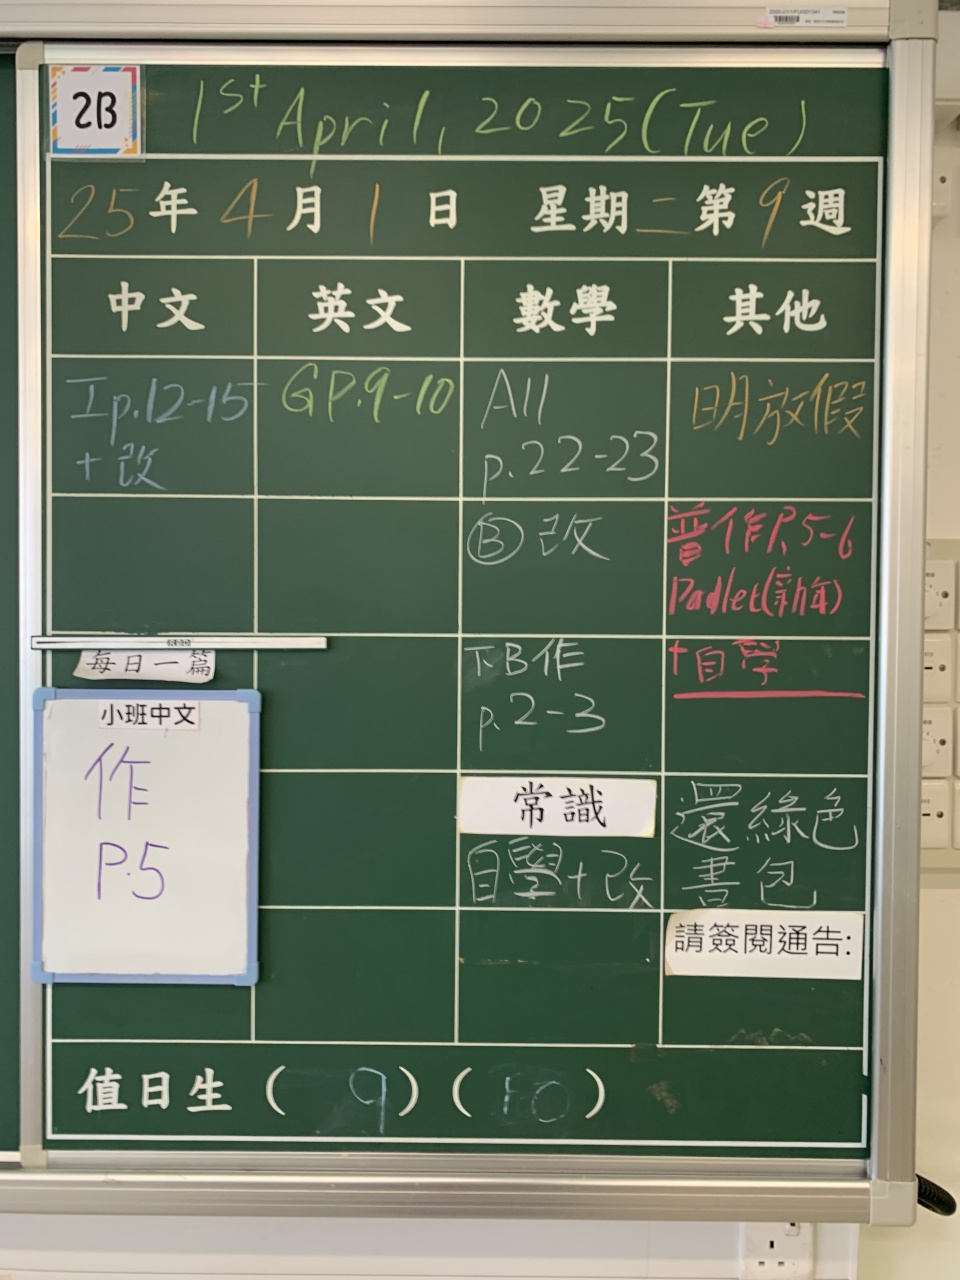 2B
1st April, 2025 (Tue)
25年4月1日 星期二第9週
中文 英文 數學 其他
I p.12-15
+改
GP.9-10
All
p.22-23
明放假
Ⓑ改
普作P.5-6
Padlet(新年)
+自學
每日一篇
小班中文
作
P.5
下B作
p.2-3
常識
自學+改
還綠色
書包
請簽閱通告:
值日生 ( 9 ) ( 10 )